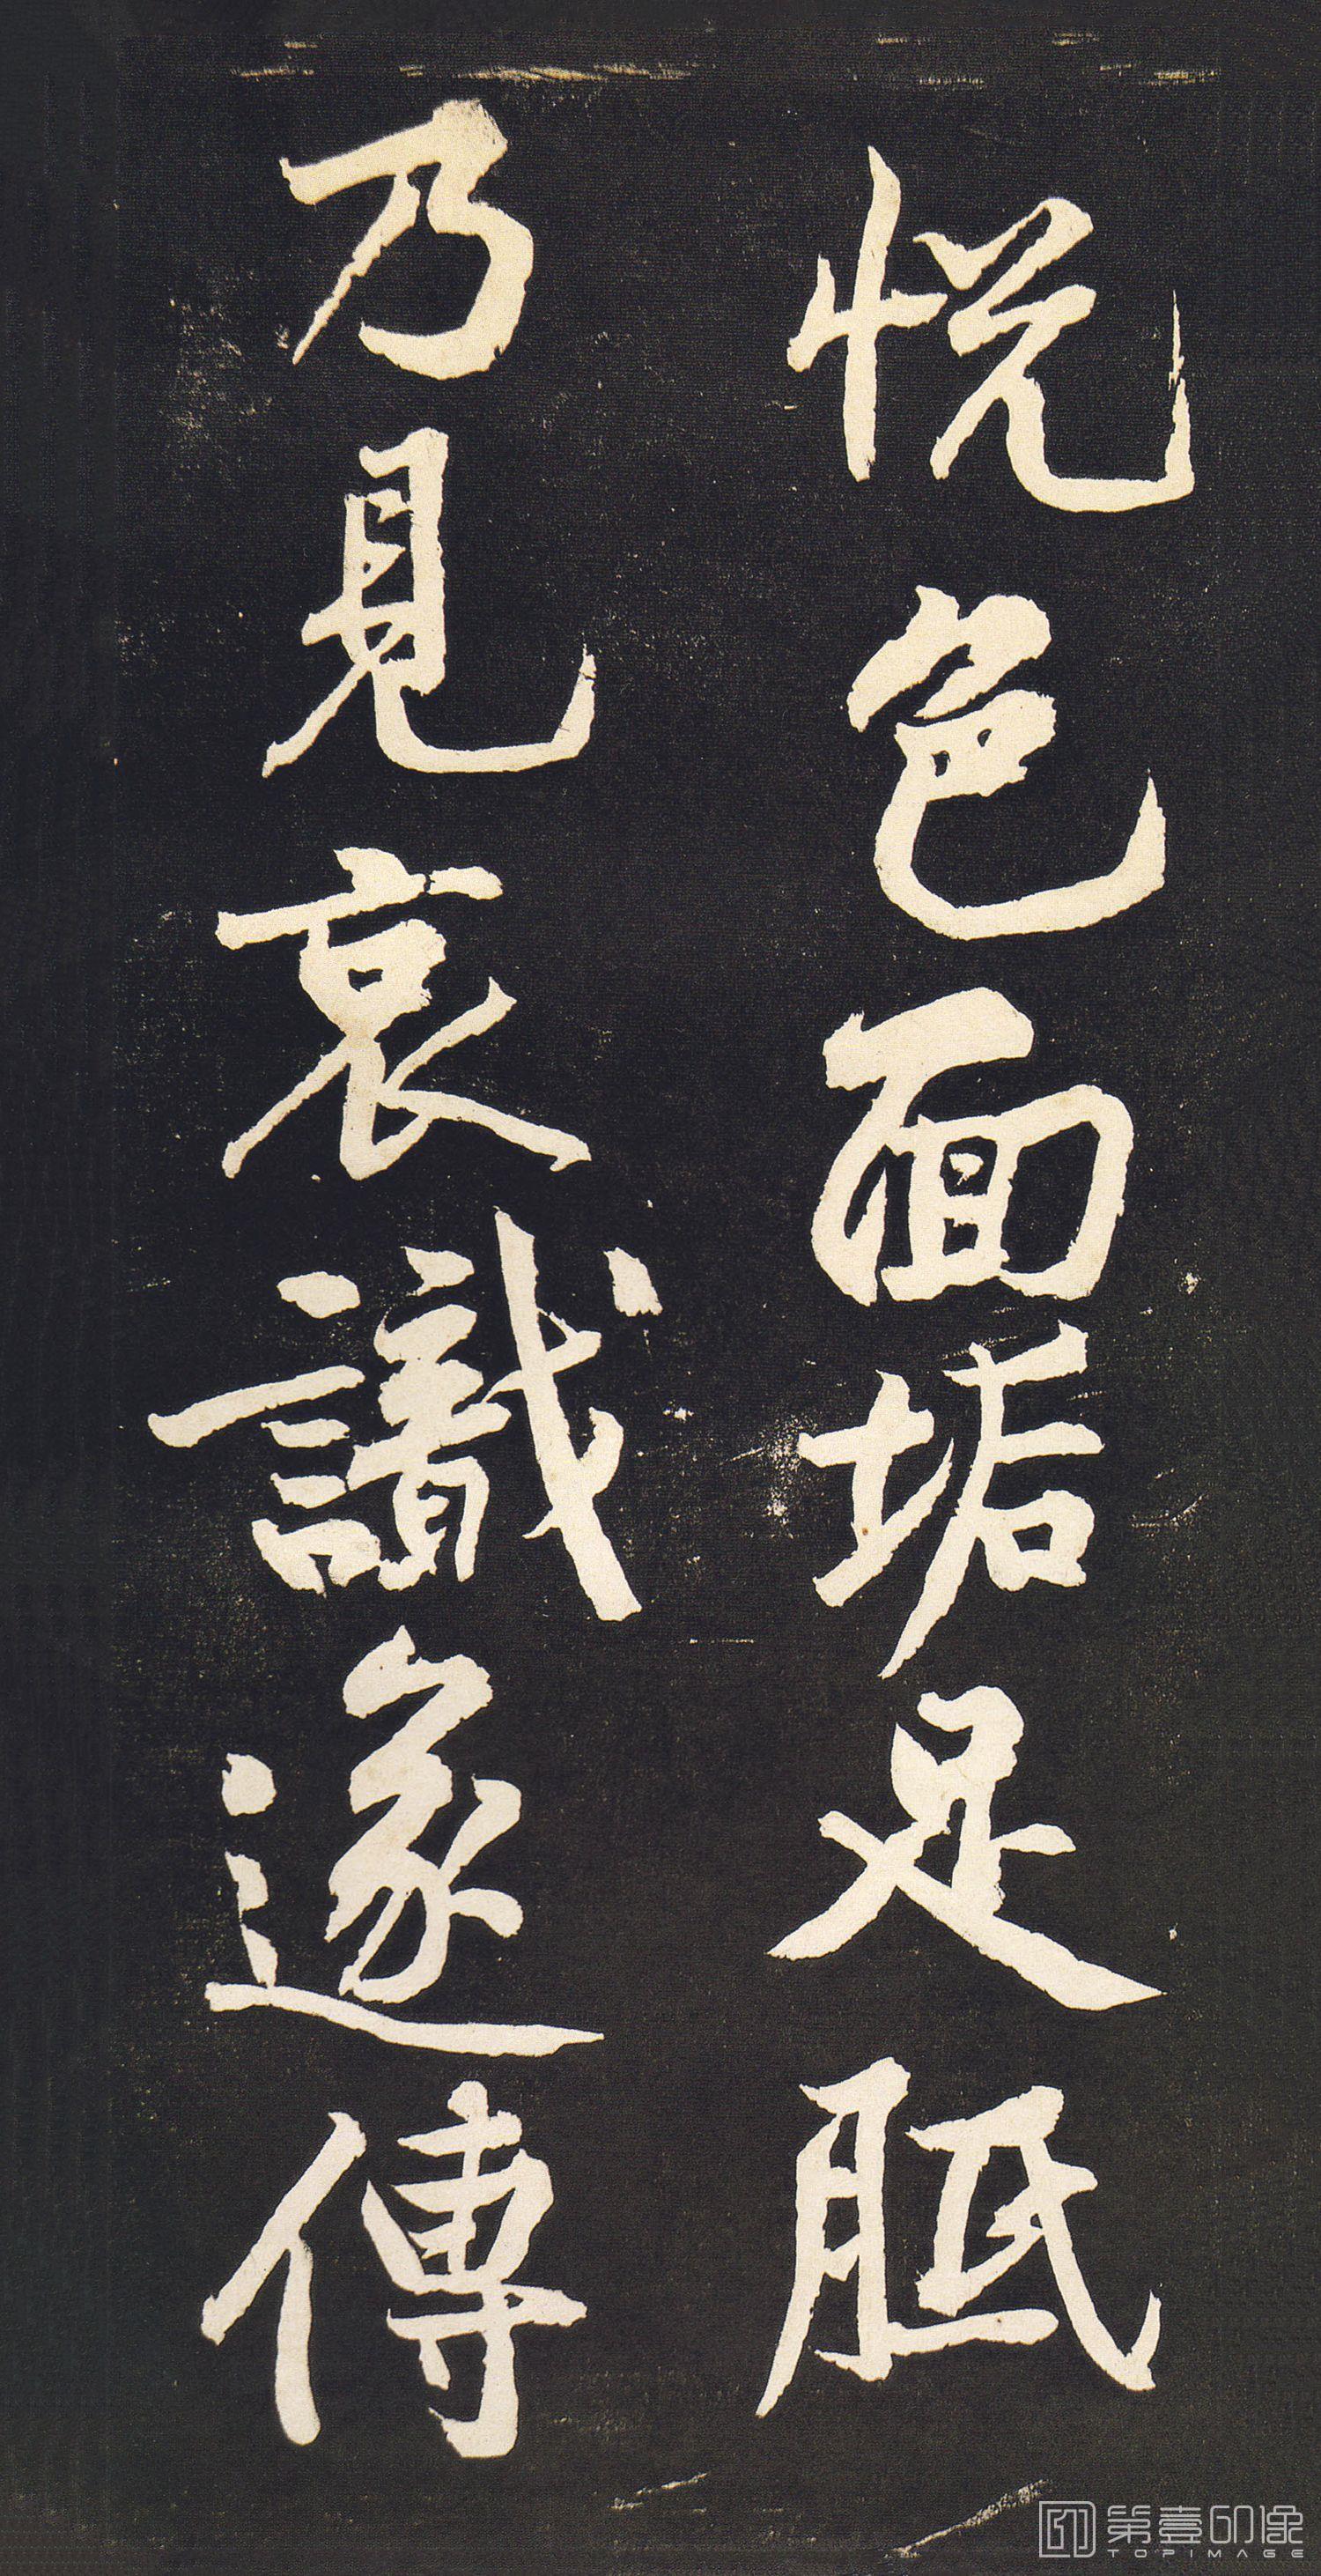 悦色面垢足胝
乃見哀識遂傳
第壹印像
TOPIMAGE